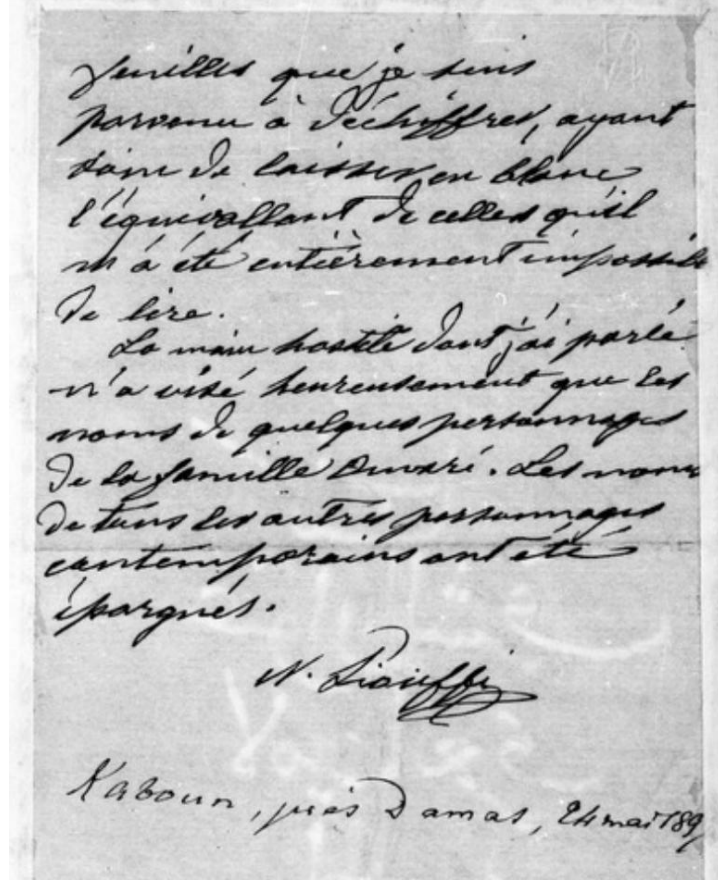 feuilles que je suis
parvenu à déchiffrer, ayant
soin de laisser en blanc
l'équivallant de celles qu'il
m'a été entièrement impossible
de lire.
La main hostile dont j'ai parlé
n'a visé heureusement que les
noms de quelques personnages
de la famille Omari. Les noms
de tous les autres personnages
contemporains ont été
épargnés.
N. Siouffi
Kaboun, près Damas, 24 mai 189